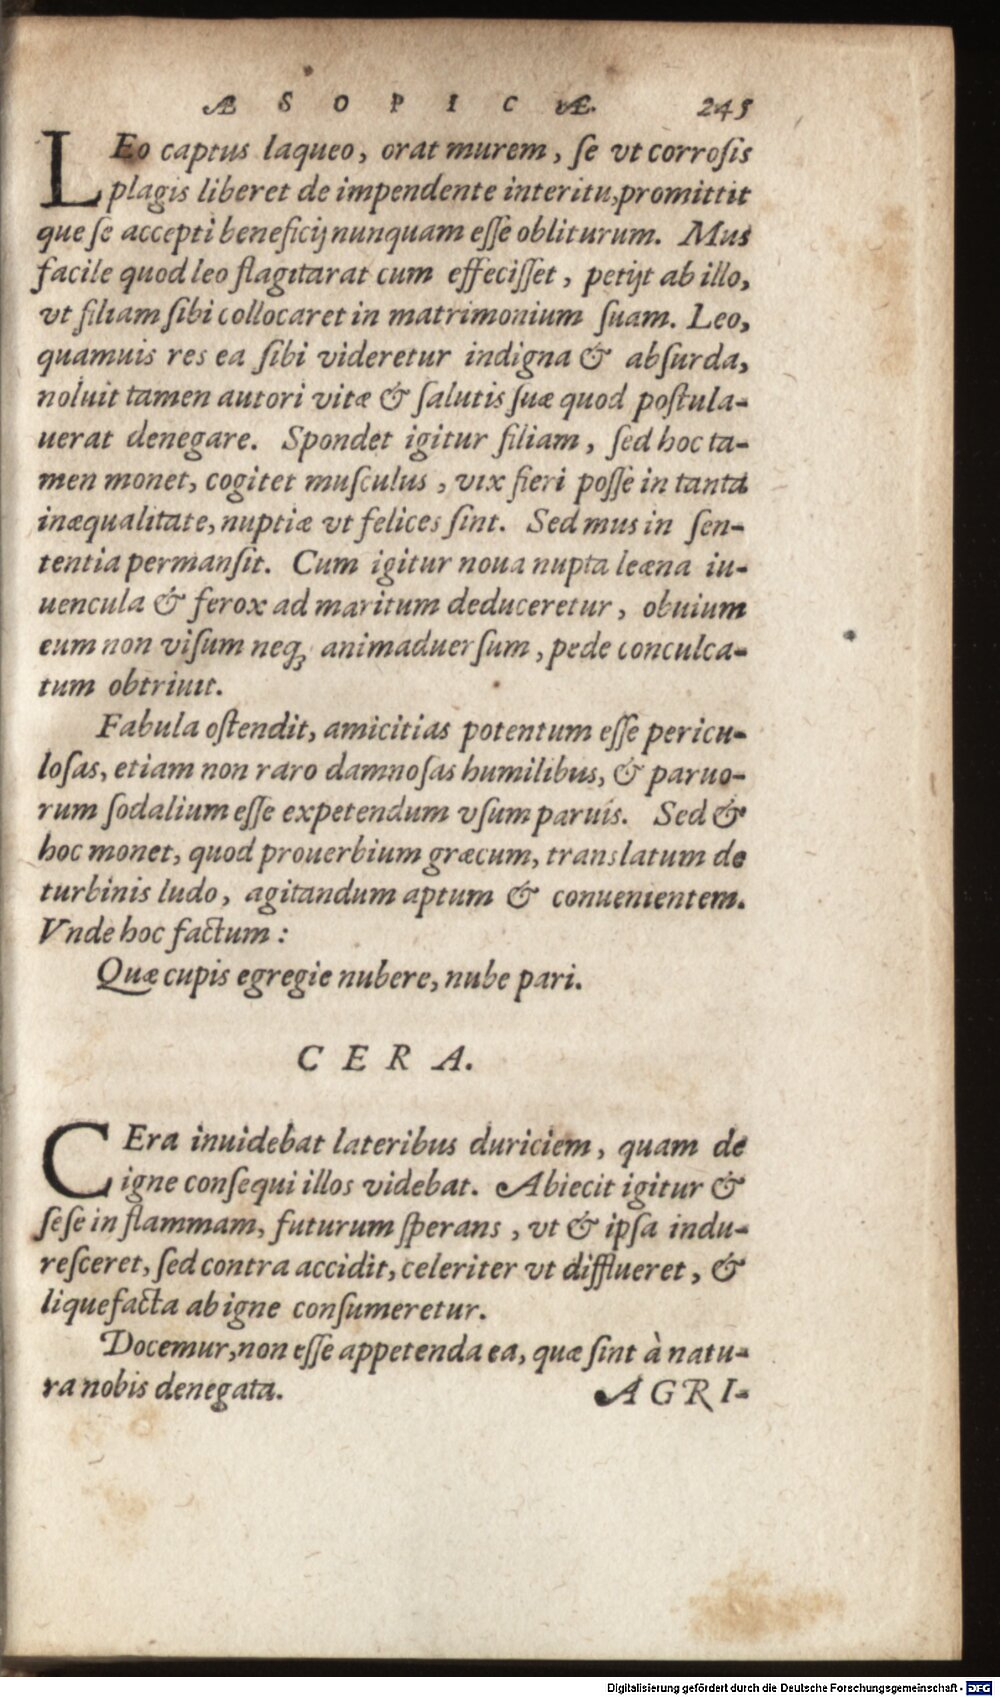 ÆSOPICÆ. 245
LEo captus laqueo, orat murem, ſe vt corroſis
plagis liberet de impendente interitu, promittit
que ſe accepti beneficij nunquam eſſe obliturum. Mus
facile quod leo flagitarat cum effeciſſet, petijt ab illo,
vt filiam ſibi collocaret in matrimonium ſuam. Leo,
quamuis res ea ſibi videretur indigna & abſurda,
noluit tamen autori vitæ & ſalutis ſuæ quod poſtula-
uerat denegare. Spondet igitur filiam, ſed hoc ta-
men monet, cogitet muſculus, vix fieri poſſe in tanta
inæqualitate, nuptiæ vt felices ſint. Sed mus in ſen-
tentia permanſit. Cum igitur noua nupta leæna iu-
uencula & ferox ad maritum deduceretur, obuium
eum non viſum neq; animaduerſum, pede conculca-
tum obtriuit.
Fabula oſtendit, amicitias potentum eſſe pericu-
loſas, etiam non raro damnoſas humilibus, & paruo-
rum ſodalium eſſe expetendum vſum paruis. Sed &
hoc monet, quod prouerbium græcum, translatum de
turbinis ludo, agitandum aptum & conuenientem.
Vnde hoc factum:
Quæ cupis egregie nubere, nube pari.
CERA.
CEra inuidebat lateribus duriciem, quam de
igne conſequi illos videbat. Abiecit igitur &
ſeſe in flammam, futurum ſperans, vt & ipſa indu-
reſceret, ſed contra accidit, celeriter vt difflueret, &
liquefacta ab igne conſumeretur.
Docemur, non eſſe appetenda ea, quæ ſint à natu-
ra nobis denegata. AGRI-
Digitalisierung gefördert durch die Deutsche Forschungsgemeinschaft - DFG